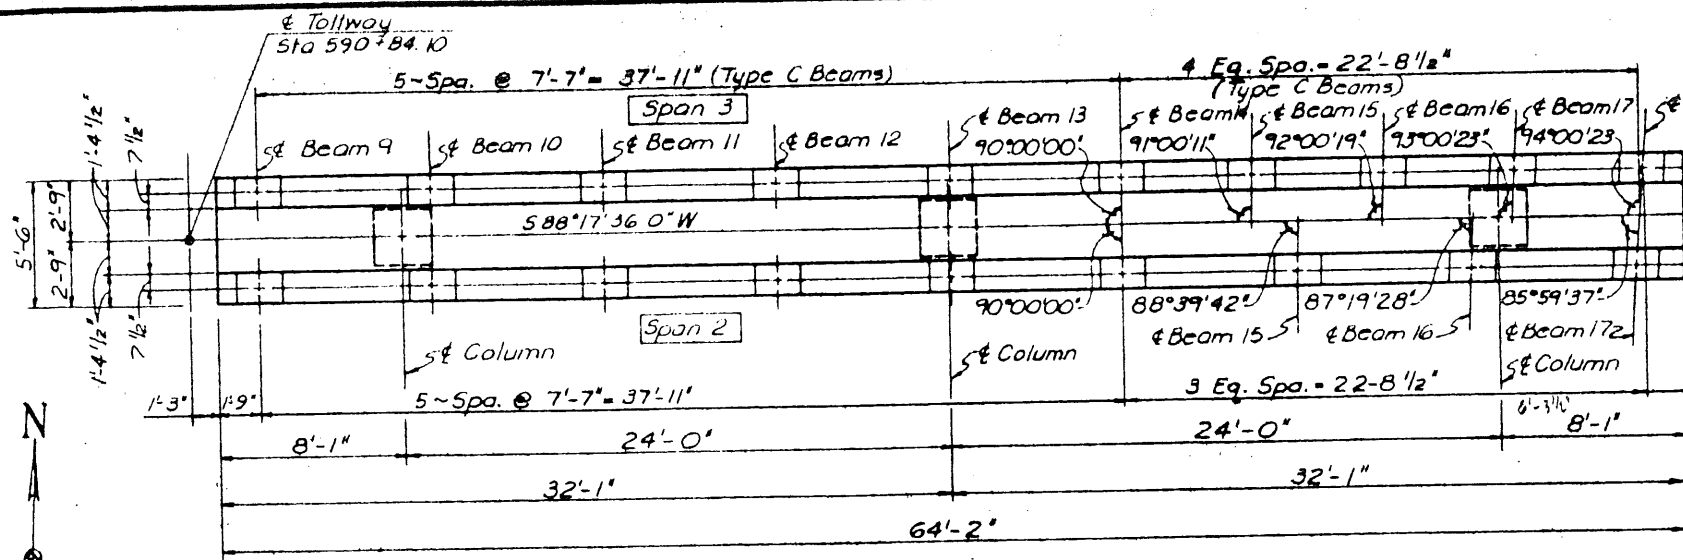 ℄ Tollway
Sta 590+84.10
5~Spa. @ 7'-7"= 37'-11" (Type C Beams)
4 Eq. Spa.= 22'-8 1/2"
(Type C Beams)
Span 3
℄ Beam 9
℄ Beam 10
℄ Beam 11
℄ Beam 12
℄ Beam 13
℄ Beam 14
℄ Beam 15
℄ Beam 16
℄ Beam 17
℄
90°00'00"
91°00'11"
92°00'19"
93°00'23"
94°00'23
1'-4 1/2"
7 1/2"
5'-6"
2'-9"
2'-9"
1'-4 1/2"
7 1/2"
S 88°17'36.0" W
90°00'00"
88°39'42"
87°19'28"
85°59'37"
Span 2
℄ Beam 15
℄ Beam 16
℄ Beam 17
℄ Column
℄ Column
℄ Column
1'-3"
1'-9"
5~Spa. @ 7'-7"= 37'-11"
3 Eq. Spa.= 22-8 1/2"
8'-1"
24'-0"
24'-0"
8'-1"
32'-1"
32'-1"
64'-2"
N